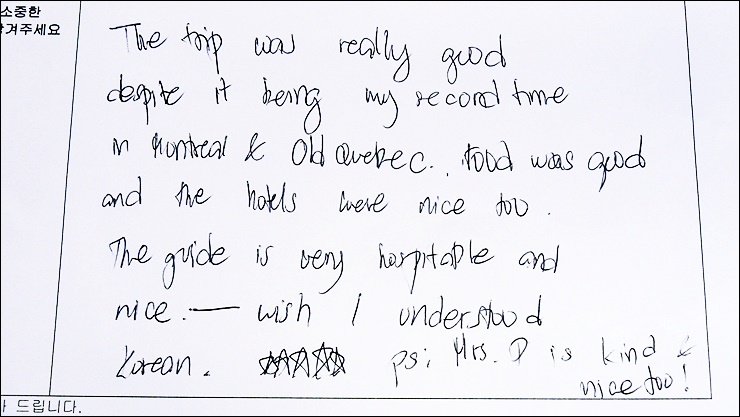 소중한
겨주세요
The trip was really good
despite it being my second time
in Montreal & Old Quebec. food was good
and the hotels were nice too.
The guide is very hospitable and
nice. — wish I understood
Korean. ps; Mrs. D is kind &
nice too!
드립니다.